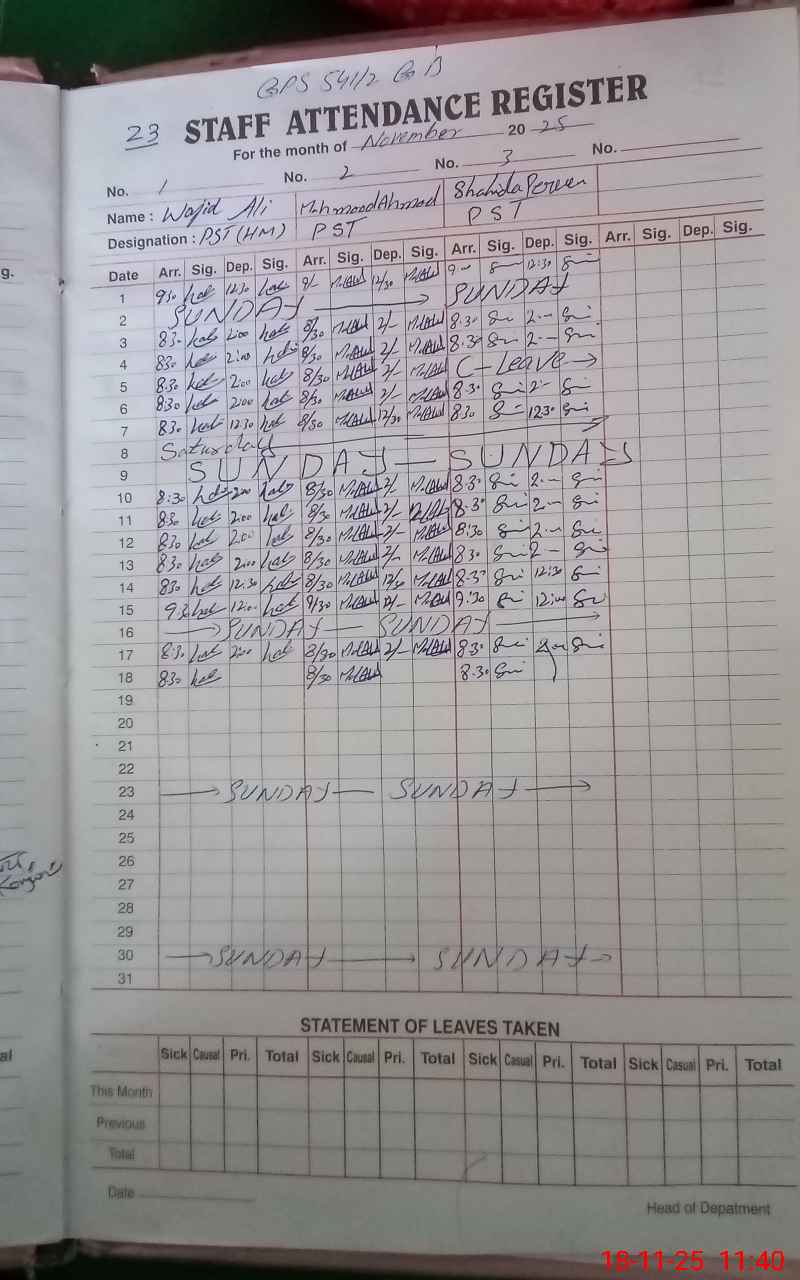 GPS 541/2 G B
23 STAFF ATTENDANCE REGISTER
For the month of November 2025
No. 1 No. 2 No. 3 No.
Name : Wajid Ali Mahmood Ahmad Shahida Perven
Designation : PST (HM) PST PST
Date Arr. Sig. Dep. Sig. Arr. Sig. Dep. Sig. Arr. Sig. Dep. Sig. Arr. Sig. Dep. Sig.
1 930 1230 9/- 12/30 9.— 12:30
2 SUNDAY SUNDAY
3 830 2:00 8/30 2/- 8.30 2.—
4 830 2:00 8/30 2/- 8.30 2.—
5 8:30 2:00 8/30 2/- C-Leave
6 8:30 200 8/30 2/- 8.30 2—
7 830 12:30 8/30 12/30 830 1230
8 Saturday
9 SUNDAY — SUNDAY
10 8:30 200 8/30 2/- 8.30 2.—
11 830 2:00 8/30 2/- 8.30 2.—
12 830 200 8/30 2/- 8:30 2.—
13 830 200 8/30 2/- 830 2—
14 830 12:30 8/30 12/30 8.30 12:30
15 930 12:00 9/30 12/- 9:30 12:00
16 SUNDAY — SUNDAY
17 8:30 200 8/30 2/- 8.30
18 830 8/30 8.30
19
20
21
22
23 SUNDAY — SUNDAY
24
25
26
27
28
29
30 SUNDAY SUNDAY
31
STATEMENT OF LEAVES TAKEN
Sick Causal Pri. Total Sick Causal Pri. Total Sick Casual Pri. Total Sick Casual Pri. Total
This Month
Previous
Total
Date
Head of Depatment
g.
al
18-11-25 11:40